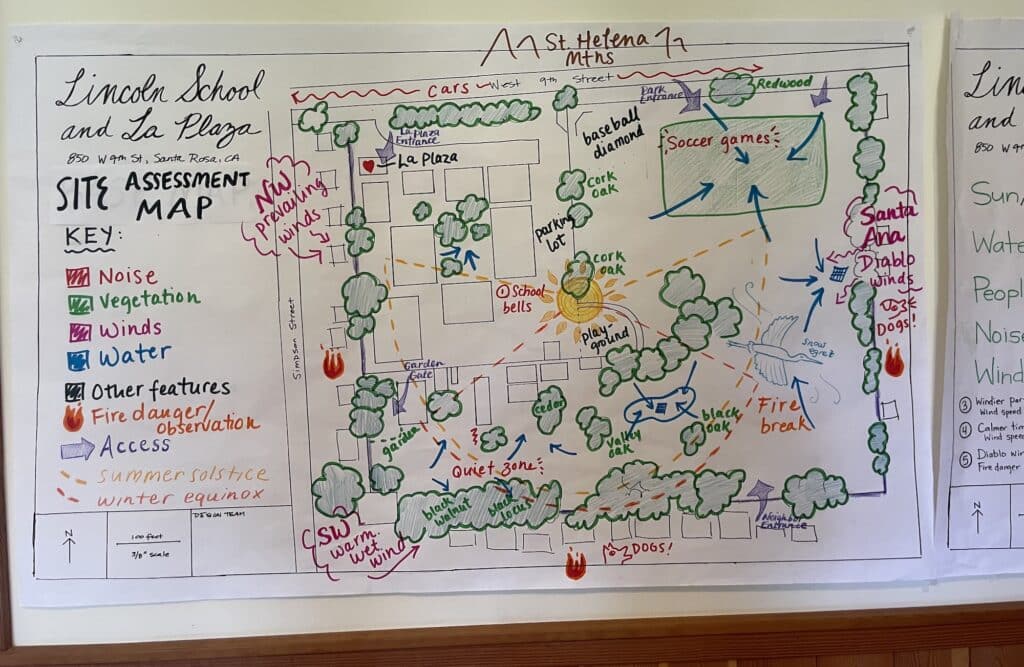 St. Helena
Mtns
CARS
West 9th Street
Lincoln School
and La Plaza
850 W 9th St, Santa Rosa, CA
SITE ASSESSMENT
MAP
KEY:
Noise
Vegetation
Winds
Water
Other features
Fire danger/
observation
Access
summer solstice
winter equinox
N
100 feet
3/8" scale
DESIGN TEAM
Simpson Street
NW
prevailing
winds
La Plaza
Entrance
La Plaza
Park
Entrance
Redwood
baseball
diamond
Soccer games
cork
oak
parking
lot
cork
oak
School
bells
play-
ground
Santa
Ana
Diablo
winds
DOGS!
snowy
egret
Garden
Gate
garden
cedar
Valley
oak
black
oak
Fire
break
Quiet zone
black
walnut
black
locus
SW
warm.
wet
wind
DOGS!
Neighbor
Entrance
and
850 W 9
Sun/
Wate
Peopl
Noise
Wind
③ Windier par
Wind speed
④ Calmer tim
Wind spee
⑤ Diablo win
Fire danger
N